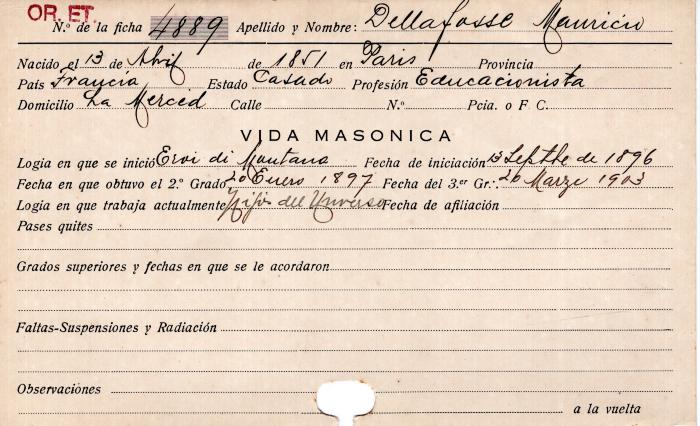 OR. ET.
N.º de la ficha 4889 Apellido y Nombre: Dellafosse Mauricio
Nacido el 13 de Abril de 1851 en Paris Provincia
País Francia Estado Casado Profesión Educacionista
Domicilio La Merced Calle N.º Pcia. o F C.
VIDA MASONICA
Logia en que se inició Eroi di Mentana Fecha de iniciación 13 Septbe de 1896
Fecha en que obtuvo el 2.º Grado 20 Enero 1897 Fecha del 3.er Gr.·. 26 Marzo 1903
Logia en que trabaja actualmente Hijos del Universo Fecha de afiliación
Pases quites
Grados superiores y fechas en que se le acordaron
Faltas-Suspensiones y Radiación
Observaciones
a la vuelta